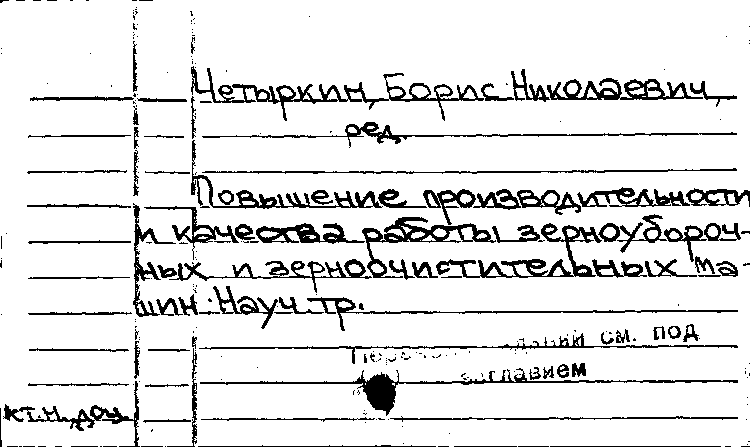 Четыркин, Борис Николаевич,
ред.
Повышение производительности
и качества работы зерноубороч-
ных и зерноочистительных ма-
шин. Науч. тр.
см. под
заглавием
к.т.н., доц.